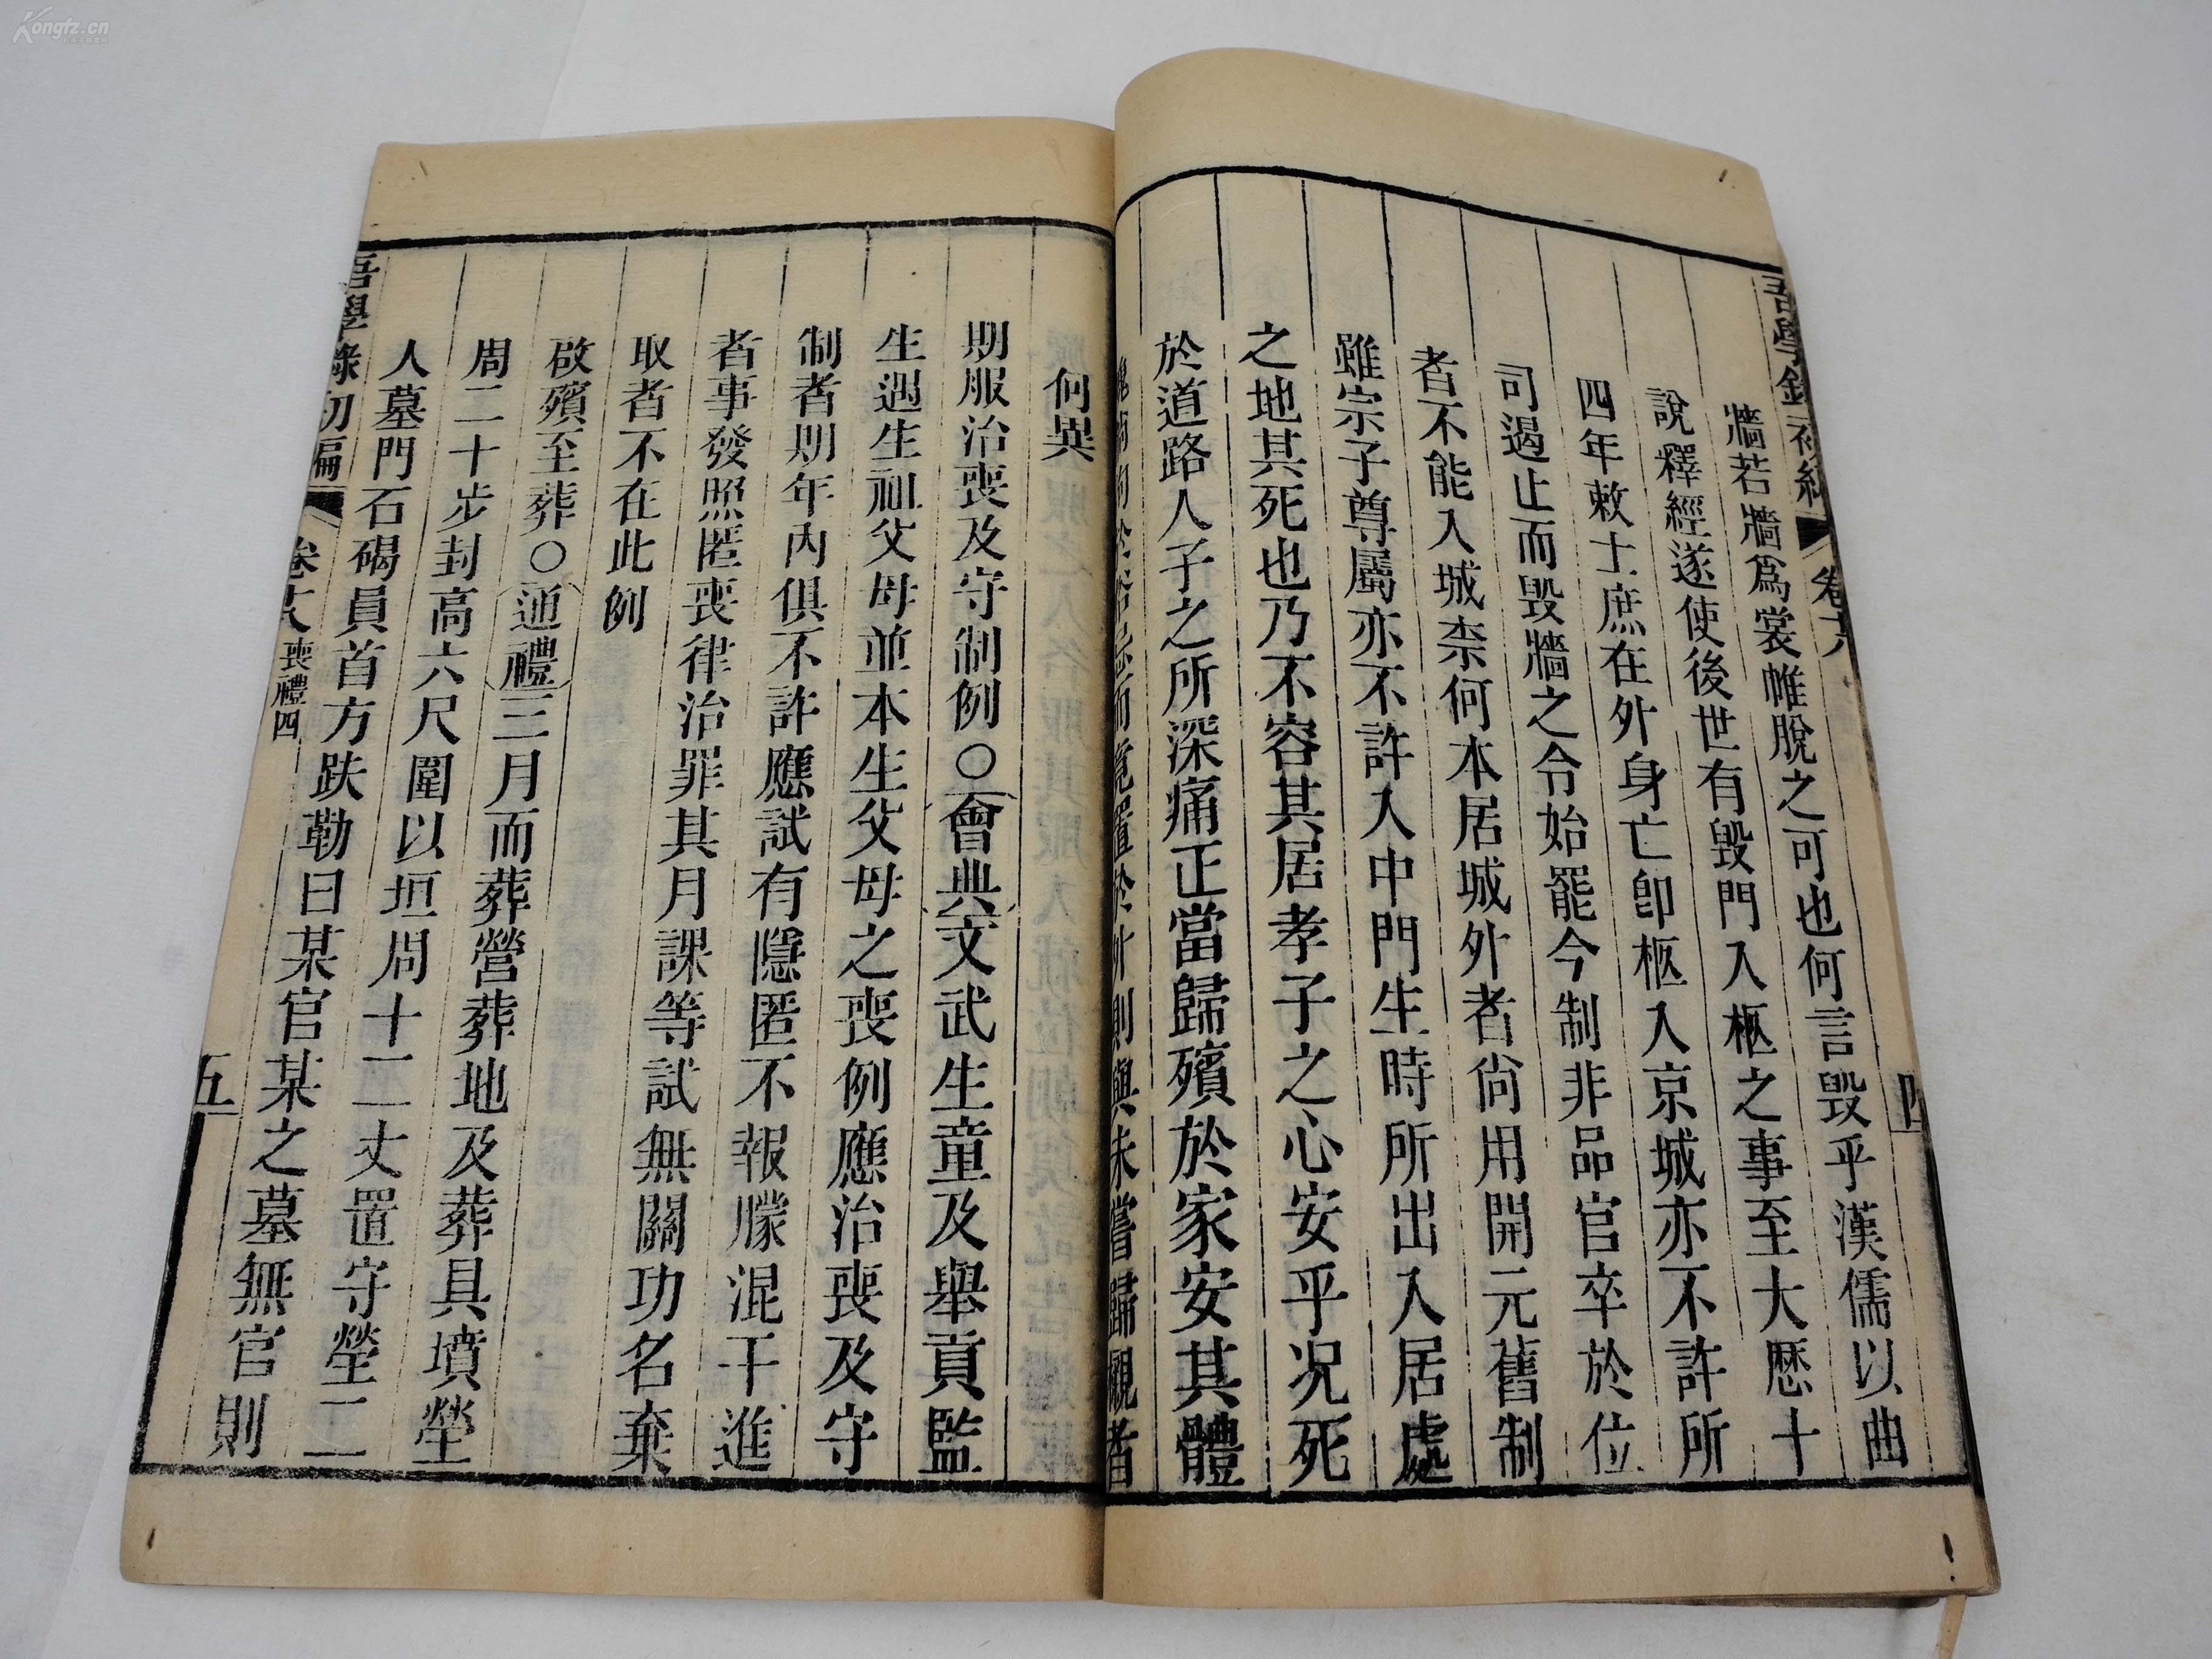 Kongfz.cn
吾學錄初編
卷十八
四
牆若牆為裳帷脫之可也何言毀乎漢儒以曲
說釋經遂使後世有毀門入柩之事至大厯十
四年敕士庶在外身亡卽柩入京城亦不許所
司遏止而毀牆之令始罷今制非品官卒於位
者不能入城柰何本居城外者尙用開元舊制
雖宗子尊屬亦不許入中門生時所出入居處
之地其死也乃不容其居孝子之心安乎況死
於道路人子之所深痛正當歸殯於家安其體
而竟置於外則與未嘗歸櫬者
何異
期服治喪及守制例○會典文武生童及舉貢監
生遇生祖父母並本生父母之喪例應治喪及守
制者期年內俱不許應試有隱匿不報朦混干進
者事發照匿喪律治罪其月課等試無關功名棄
取者不在此例
啟殯至葬○通禮三月而葬營葬地及葬具墳塋
周二十步封高六尺圍以垣周十二丈置守塋二
人墓門石碣員首方趺勒曰某官某之墓無官則
吾學錄初編
卷十八 喪禮四
五